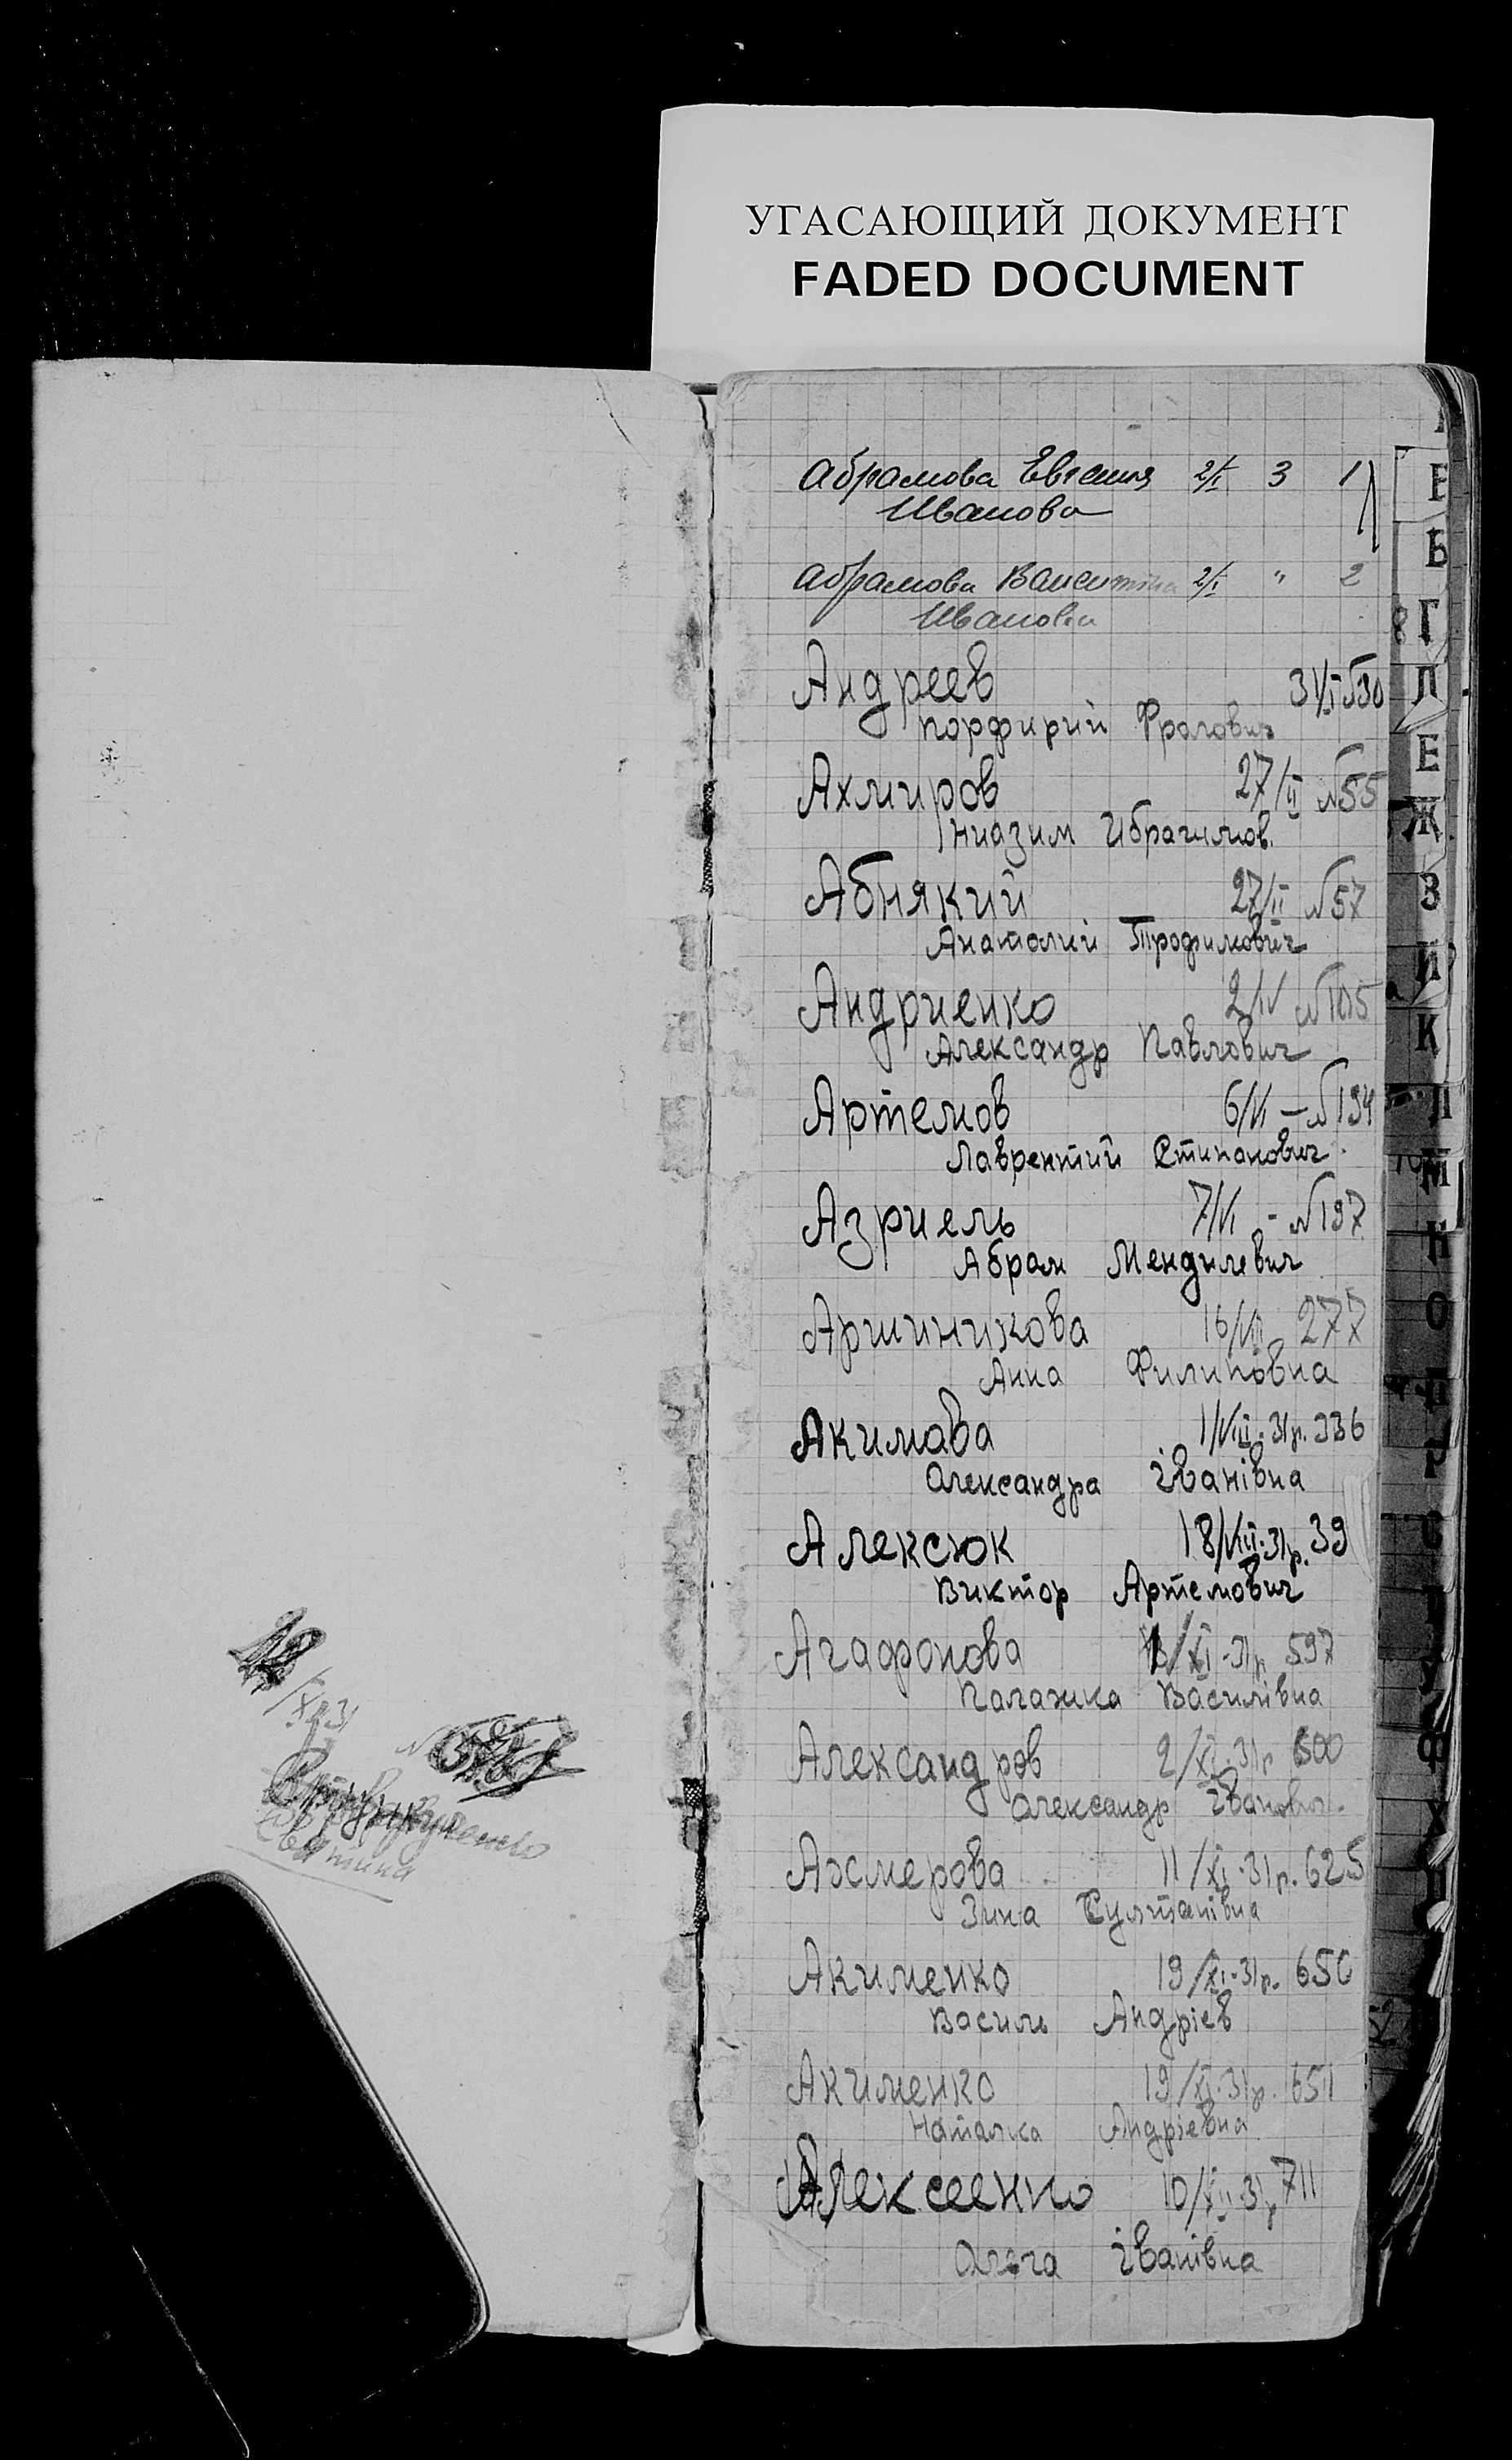 УГАСАЮЩИЙ ДОКУМЕНТ
FADED DOCUMENT
Абрамова Евгения 2/I 3 1
Иванова
Абрамова Валентина 2/I " 2
Ивановн
Андреев 31/I №30
Порфирий Фролович
Ахмиров 27/II №55
Ниазим Ибрагимов.
Абнякий 27/II №57
Анатолий Трофимович
Андриенко 2/IV №105
Александр Павлович
Артемов 6/VI — №194
Лаврентий Стипанович
Азриель 7/VI - №197
Абрам Мендилевич
Аршиникова 16/VII 277
Анна Филиповна
Акимава 1/VIII-31р. 336
Александра Іванівна
Алексюк 18/VIII-31р. 39
Виктор Артемович
Агафонова /XI-31р 597
Палажка Василівна
Александров 2/XI-31р 600
Александр Іванович.
Ахмерова 11/XI-31р. 625
Зина Султанівна
Акименко 19/XI-31р. 650
Василь Андріев
Акименко 19/XI-31р. 651
Наталка Андріевна
Алексеенко 10/XII 31р 711
Ольга Іванівна
/XII 31
№
Б
Г
Е
Ж
З
И
К
Л
М
Н
О
П
Р
С
Т
У
Ф
Х